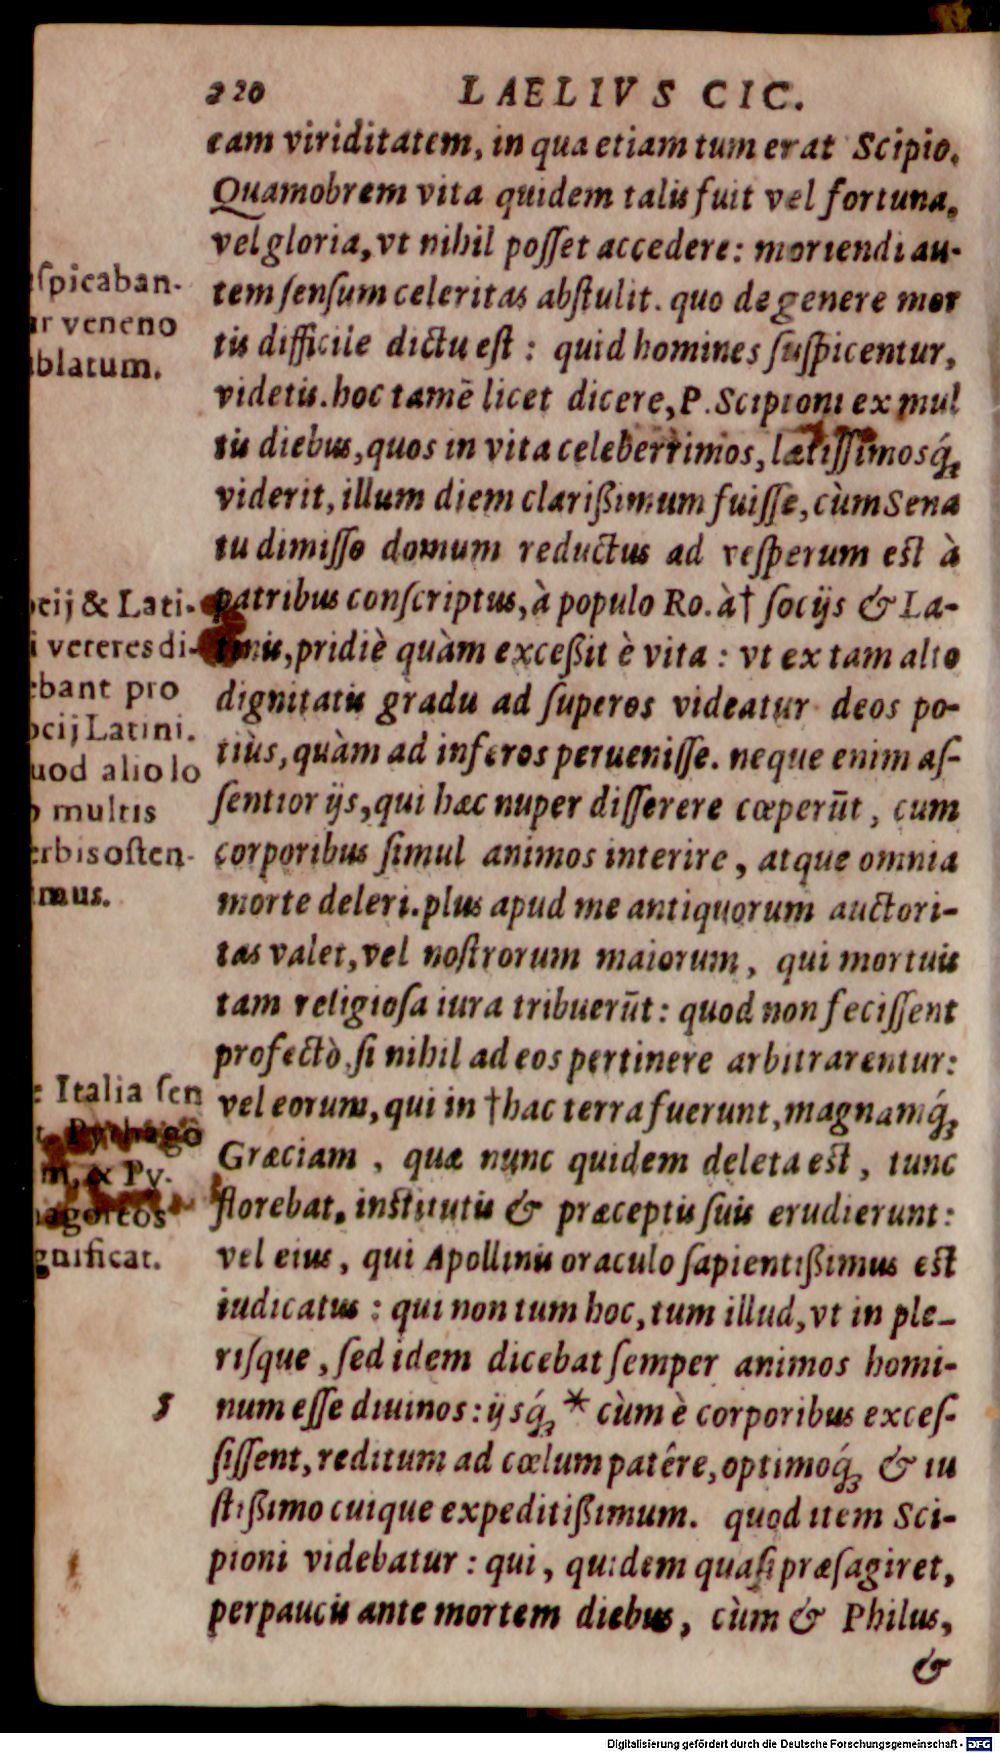 220 LAELIVS CIC.
eam viriditatem, in qua etiam tum erat Scipio.
Quamobrem vita quidem talis fuit vel fortuna,
vel gloria, vt nihil posſet accedere: moriendi au-
tem ſenſum celeritas abſtulit. quo de genere mor
tis difficile dictu eſt : quid homines ſuſpicentur,
videtis. hoc tamē licet dicere, P. Scipioni ex mul
tis diebus, quos in vita celeberrimos, lætiſſimosq́;
viderit, illum diem clarißimum fuiſſe, cùm Sena
tu dimiſſo domum reductus ad veſperum eſt à
patribus conſcriptus, à populo Ro. à † ſocijs & La-
tinis, pridiè quàm exceßit è vita : vt ex tam alto
dignitatis gradu ad ſuperos videatur deos po-
tiùs, quàm ad inferos perueniſſe. neque enim aſ-
ſentior ijs, qui hæc nuper diſſerere cœperūt, cum
corporibus ſimul animos interire, atque omnia
morte deleri. plus apud me antiquorum auctori-
tas valet, vel noſtrorum maiorum, qui mortuis
tam religioſa iura tribuerūt: quod non feciſſent
profectò, ſi nihil ad eos pertinere arbitrarentur:
vel eorum, qui in † hac terra fuerunt, magnamq́;
Græciam , quæ nunc quidem deleta eſt, tunc
florebat, inſtitutis & præceptis ſuis erudierunt:
vel eius, qui Apollinis oraculo ſapientißimus eſt
iudicatus : qui non tum hoc, tum illud, vt in ple-
riſque, ſed idem dicebat ſemper animos homi-
num eſſe diuinos: ijsq́; * cùm è corporibus exceſ-
ſiſſent, reditum ad cœlum patêre, optimoq́; & iu
ſtißimo cuique expeditißimum. quod item Sci-
pioni videbatur : qui, quidem quaſi præſagiret,
perpaucis ante mortem diebus, cùm & Philus,
&
ſpicaban-
r veneno
blatum.
cij & Lati-
i veteres di-
bant pro
ocij Latini.
uod alio lo
multis
rbis oſten-
mus.
Italia ſen
Pythago
m, & Py-
agoreos
gnificat.
5
Digitalisierung gefördert durch die Deutsche Forschungsgemeinschaft - DFG